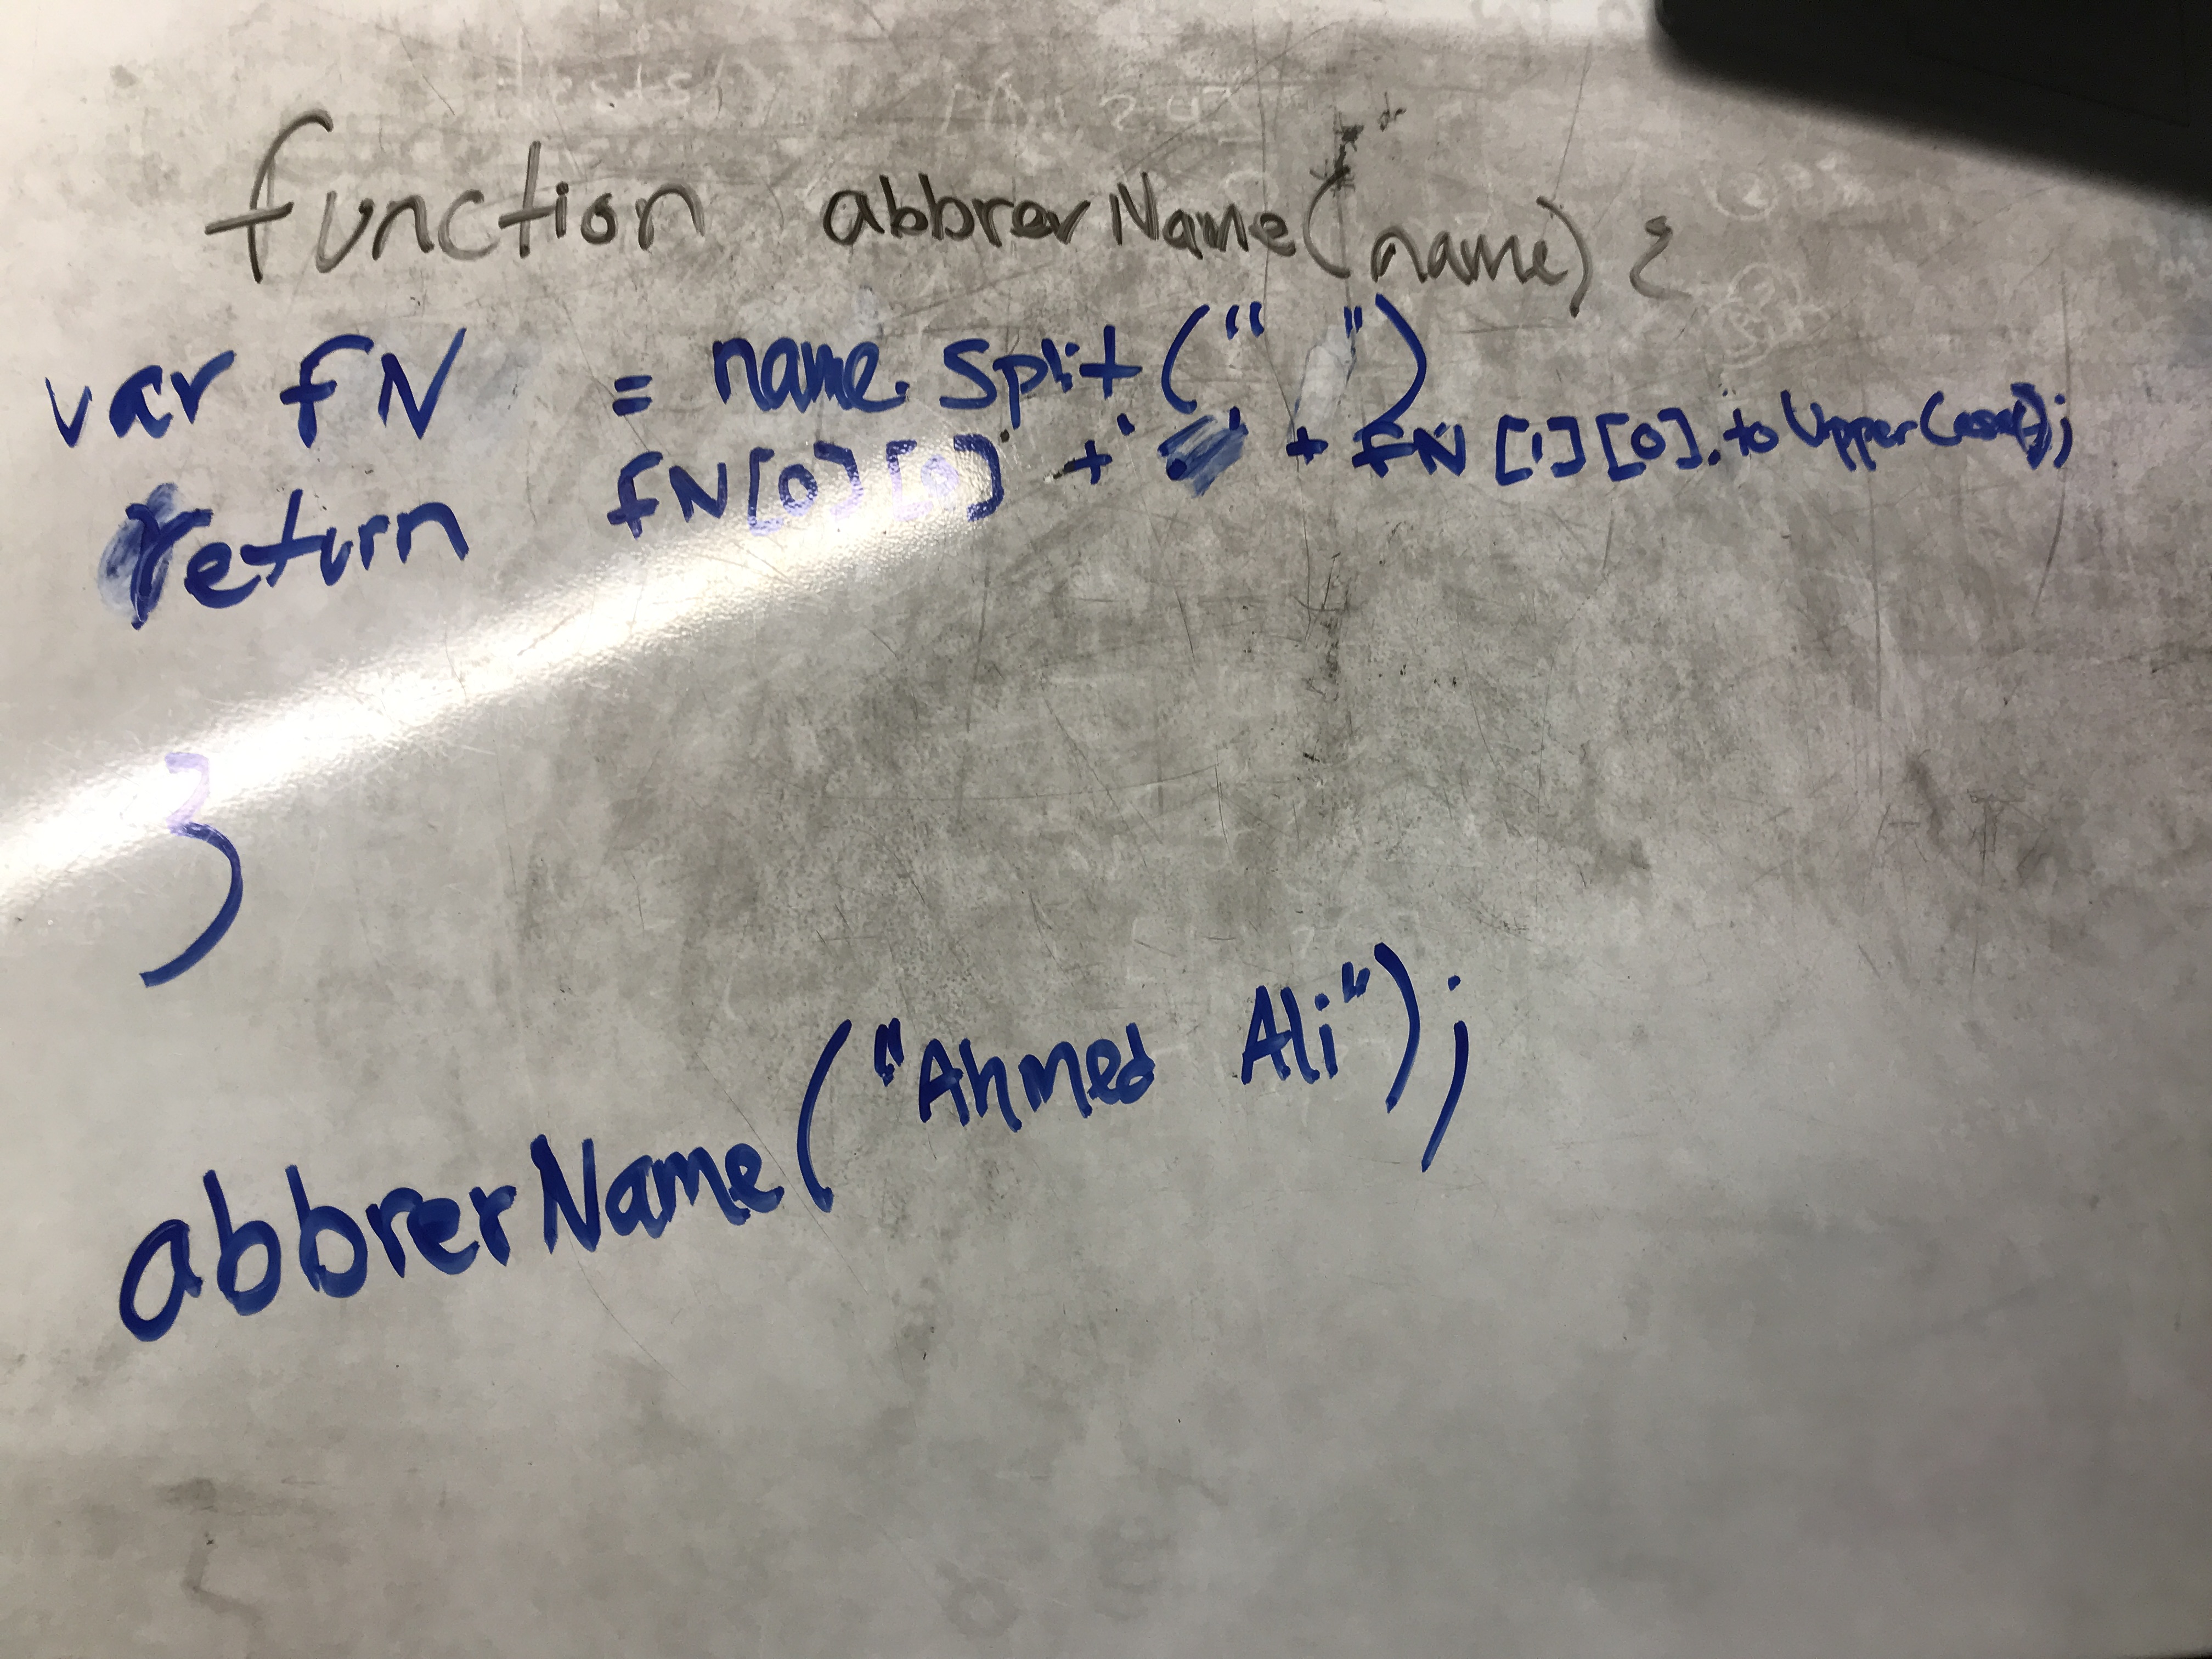 function abbrerName(name) {
var fN = name.split(" ")
return fN[0][0] + '.' + fN[1][0].toUpperCase();
}
abbrerName("Ahmed Ali");